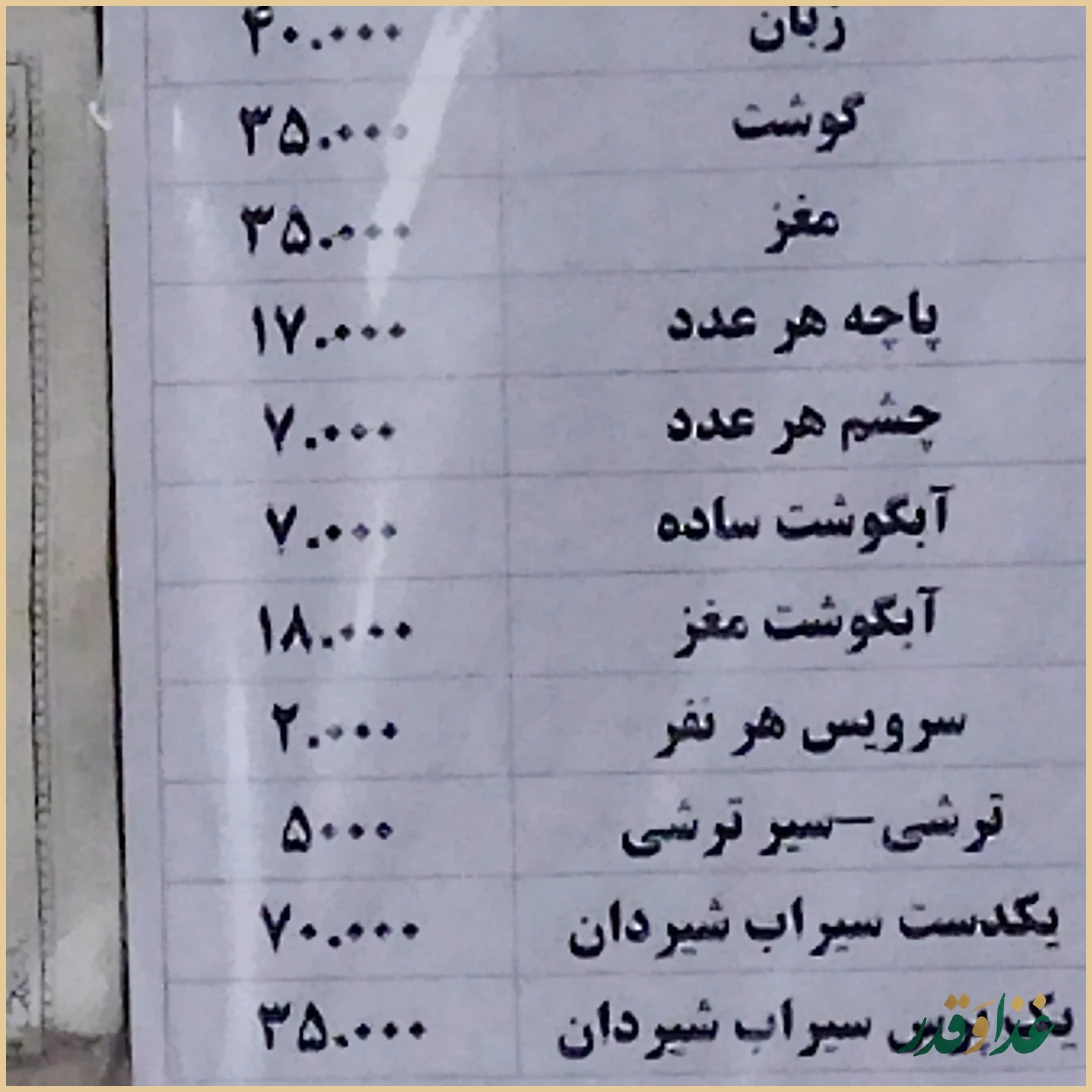 زبان ۴۰.۰۰۰
گوشت ۳۵.۰۰۰
مغز ۳۵.۰۰۰
پاچه هر عدد ۱۷.۰۰۰
چشم هر عدد ۷.۰۰۰
آبگوشت ساده ۷.۰۰۰
آبگوشت مغز ۱۸.۰۰۰
سرویس هر نفر ۲.۰۰۰
ترشی-سیر ترشی ۵۰۰۰
یکدست سیراب شیردان ۷۰.۰۰۰
یک پرس سیراب شیردان ۳۵.۰۰۰
غذا و قدر